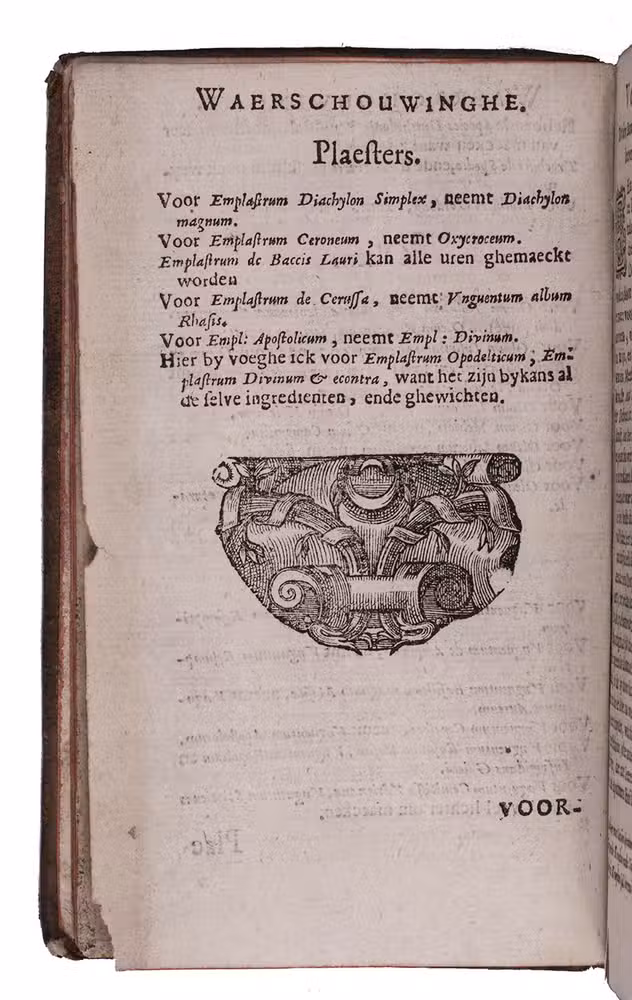 WAERSCHOUWINGHE.
Plaeſters.
Voor Emplaſtrum Diachylon Simplex, neemt Diachylon
magnum.
Voor Emplaſtrum Ceroneum, neemt Oxycroceum.
Emplaſtrum de Baccis Lauri kan alle uren ghemaeckt
worden
Voor Emplaſtrum de Ceruſſa, neemt Vnguentum album
Rhaſis.
Voor Empl: Apoſtolicum, neemt Empl: Divinum.
Hier by voeghe ick voor Emplaſtrum Opodelticum, Em-
plaſtrum Divinum & econtra, want het zijn bykans al
de ſelve ingredienten, ende ghewichten.
VOOR-